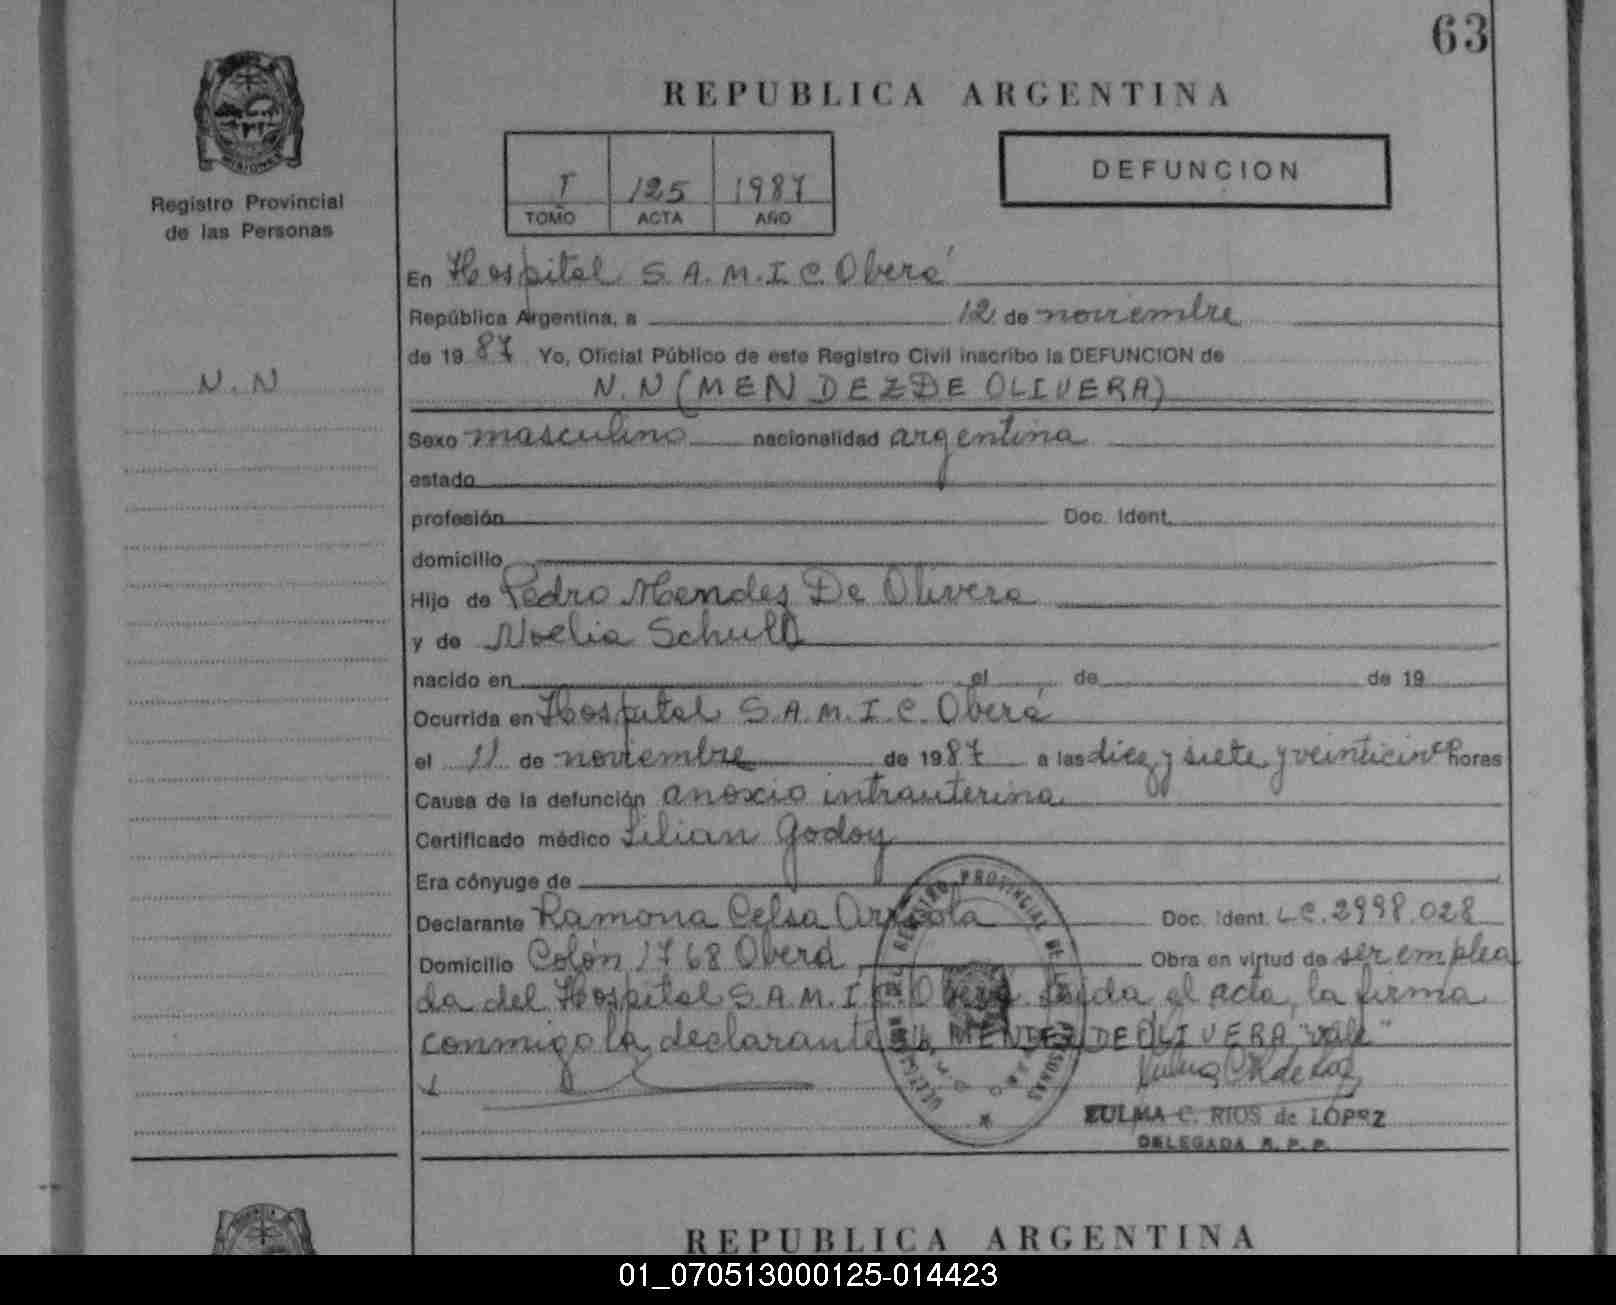 63
REPUBLICA ARGENTINA
Registro Provincial
de las Personas
T 125 1987
TOMO ACTA AÑO
DEFUNCION
En Hospital S.A.M.I.C. Oberá
República Argentina, a 12 de noviembre
de 1987 Yo, Oficial Público de este Registro Civil inscribo la DEFUNCION de
N.N
N.N (MENDEZ DE OLIVERA)
Sexo masculino nacionalidad argentina
estado
profesión Doc. Ident.
domicilio
Hijo de Pedro Mendes De Olivera
y de Noelia
nacido en el de de 19
Ocurrida en Hospital S.A.M.I.C. Oberá
el 11 de noviembre de 1987 a las diez y siete y veinticinc horas
Causa de la defunción anoxio intrauterina
Certificado médico Lilian Godoy
Era cónyuge de
Declarante Ramona Celsa Doc. Ident. L.C. 2998.028
Domicilio Colón 1768 Oberá Obra en virtud de ser emplea
da del Hospital S.A.M.I.C. Oberá. Leida el acta, la firma
conmigo la declarante MENDEZ DE OLIVERA "vale"
REGISTRO PROVINCIAL DE LAS PERSONAS
ZULMA C. RIOS de LOPEZ
DELEGADA R. P. P.
REPUBLICA ARGENTINA
01_070513000125-014423